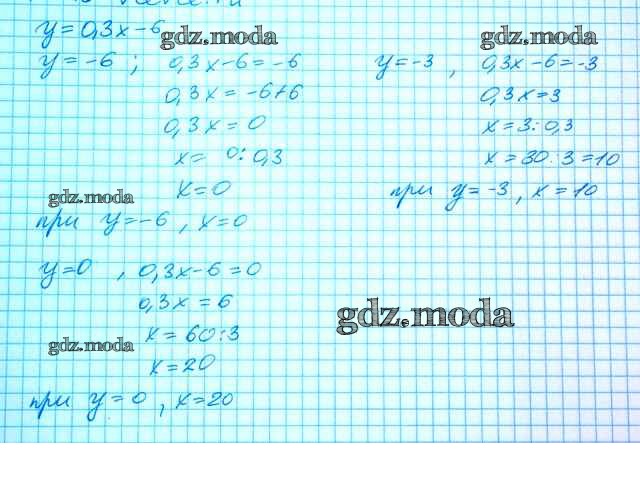 y=0,3x-6
gdz.moda
gdz.moda
y=-6 ; 0,3x-6=-6
0,3x=-6+6
0,3x=0
x= 0:0,3
x=0
gdz.moda
при y=-6, x=0
y=-3, 0,3x-6=-3
0,3x=3
x=3:0,3
x=30:3=10
при y=-3, x=10
y=0, 0,3x-6=0
0,3x=6
x=60:3
gdz.moda
x=20
при y=0, x=20
gdz.moda